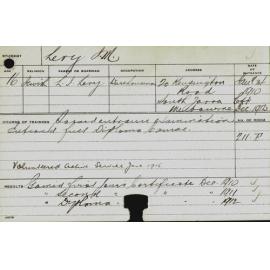 STUDENT Levy J.M.
AGE RELIGION PARENT OR GUARDIAN OCCUPATION ADDRESS DATE OF ENTRANCE
16 Jewish L. J. Levy Warehouseman 20 Kensington
Road 1910
South Yarra Left
Melbourne Dec 1912
COURSE OF TRAINING
Passed entrance examination
Entered first Diploma Course.
Volunteered Active Service June 1915
RESULTS: Gained first Years Certificate Dec 1910
" Second " " " 1911
" Diploma " " 1912